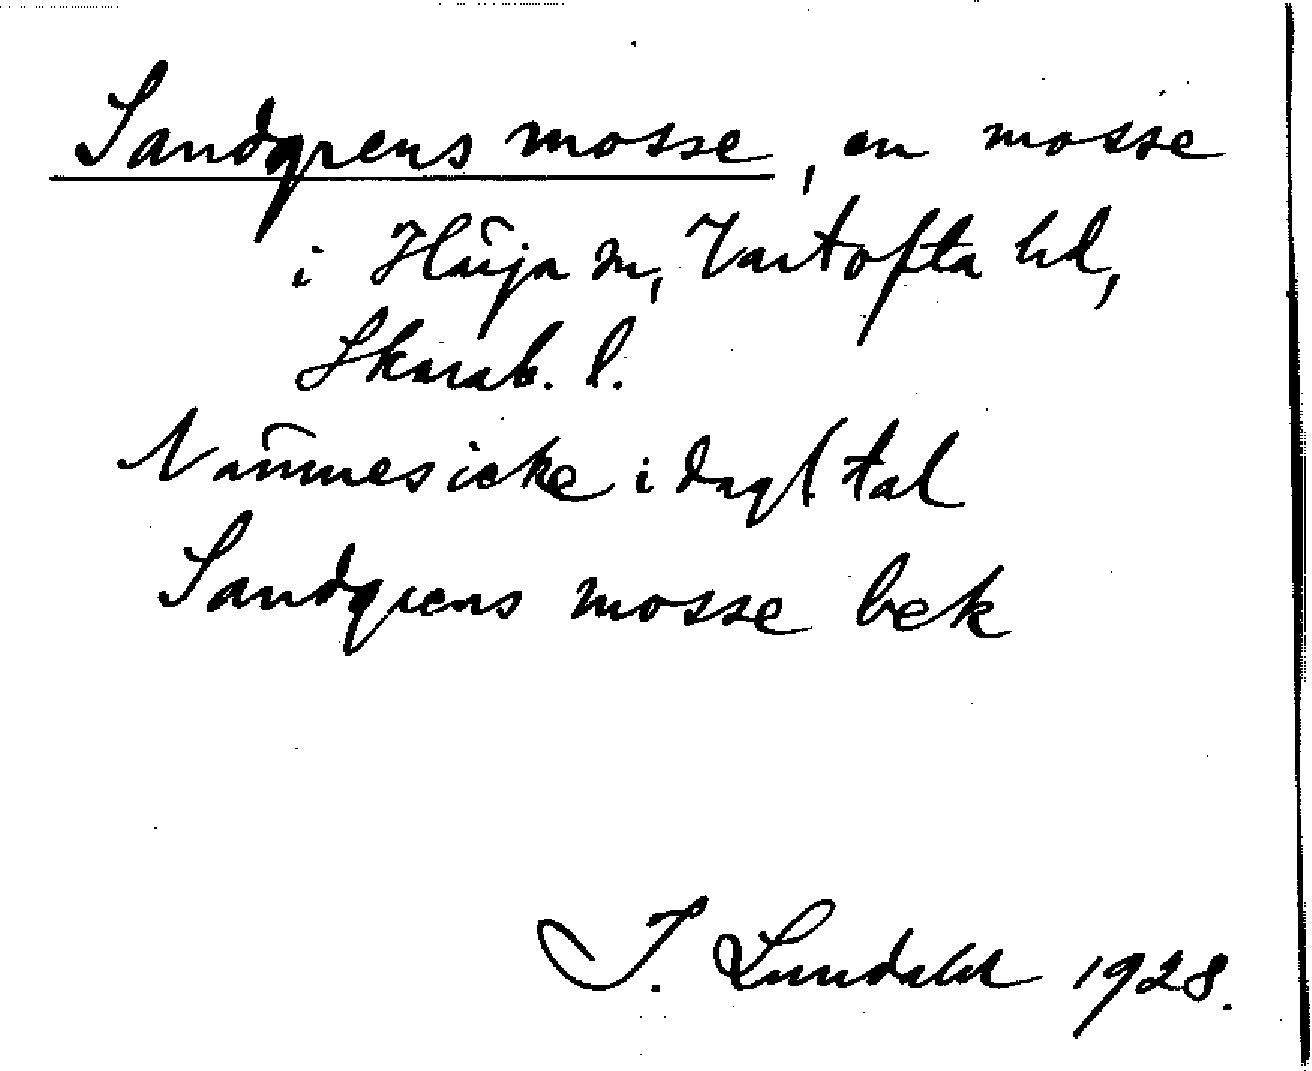 Sandgrens mosse, en mosse
i Härja sn, Vartofta hd,
Skarab. l.
Nämnes icke i dagl tal
Sandgrens mosse bek
I. Lundahl 1928.